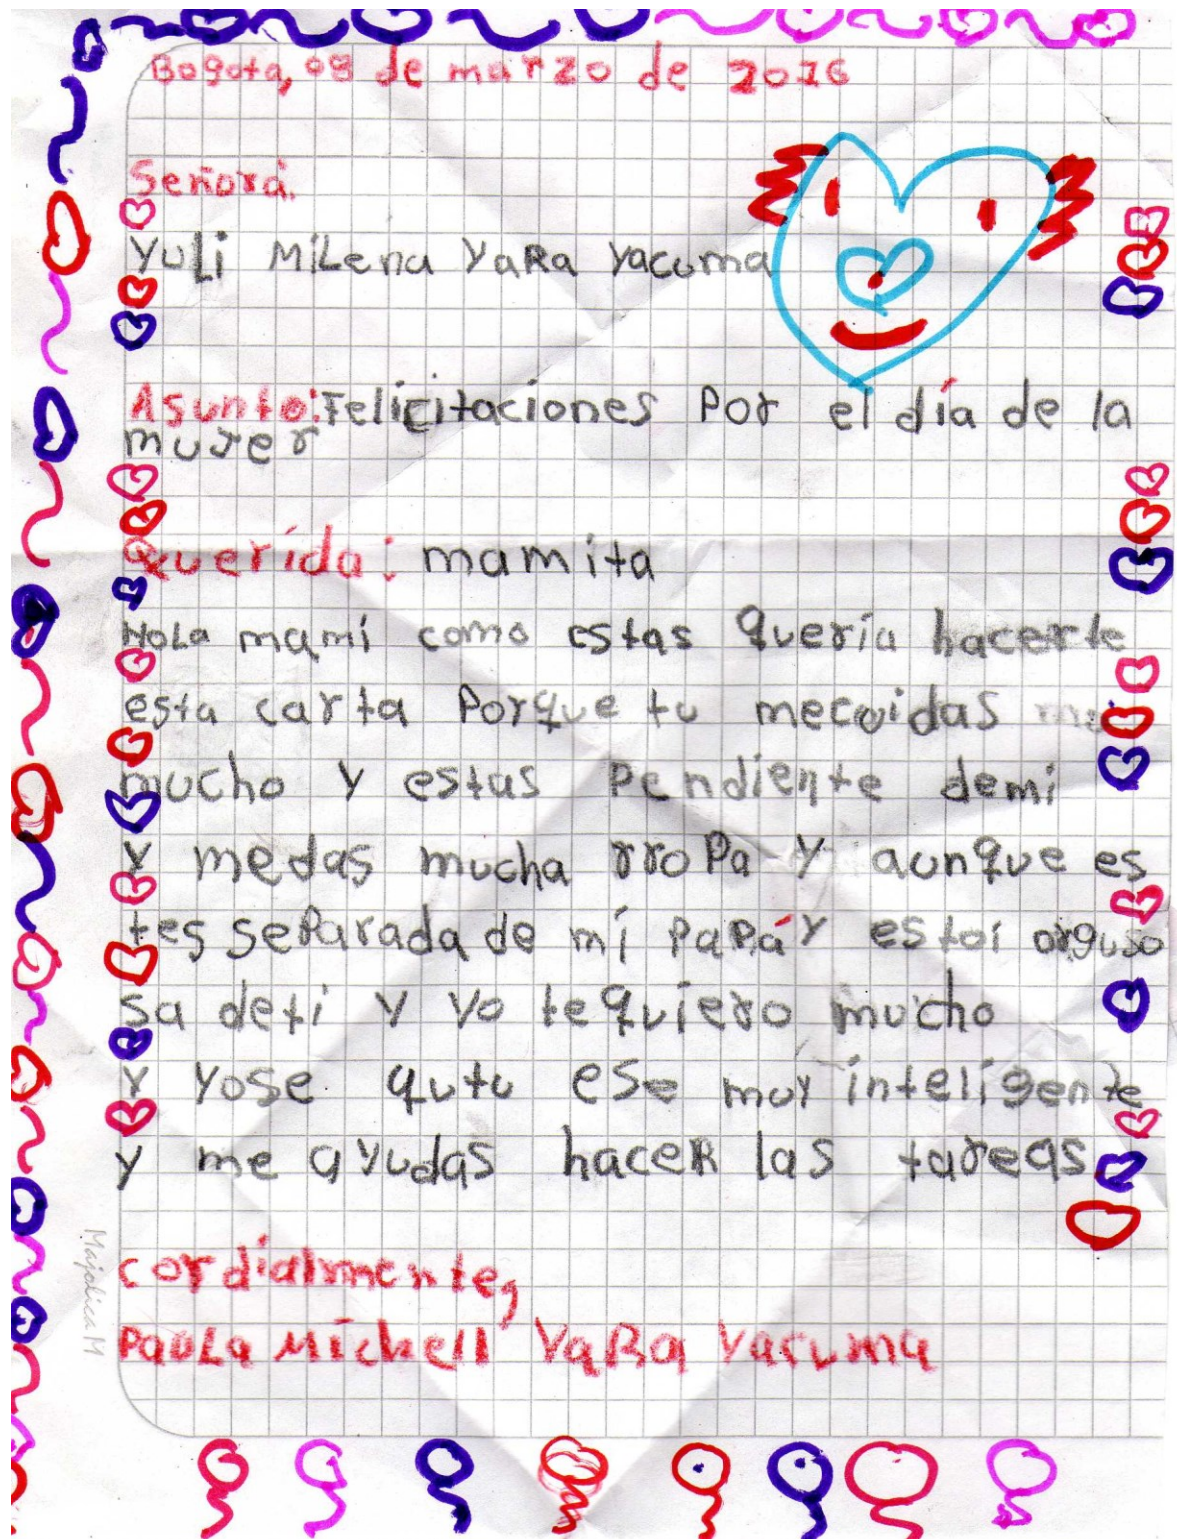 Bogota, 08 de marzo de 2016
Señora.
Yuli Milena Yara Yacuma
Asunto: Felicitaciones Por el día de la
mujer
Querida: mamita
Hola mamí como estas quería hacerte
esta carta Porque tu mecuidas
mucho y estas Pendiente demi
y medas mucha rropa y aunque es
tes separada de mí papá y estoi orguso
sa deti y yo tequiero mucho
y yose qutu ese muy inteligente
y me ayudas hacer las tareas
cordialmente,
Paola Michell Yara Yacuma
Majolica M